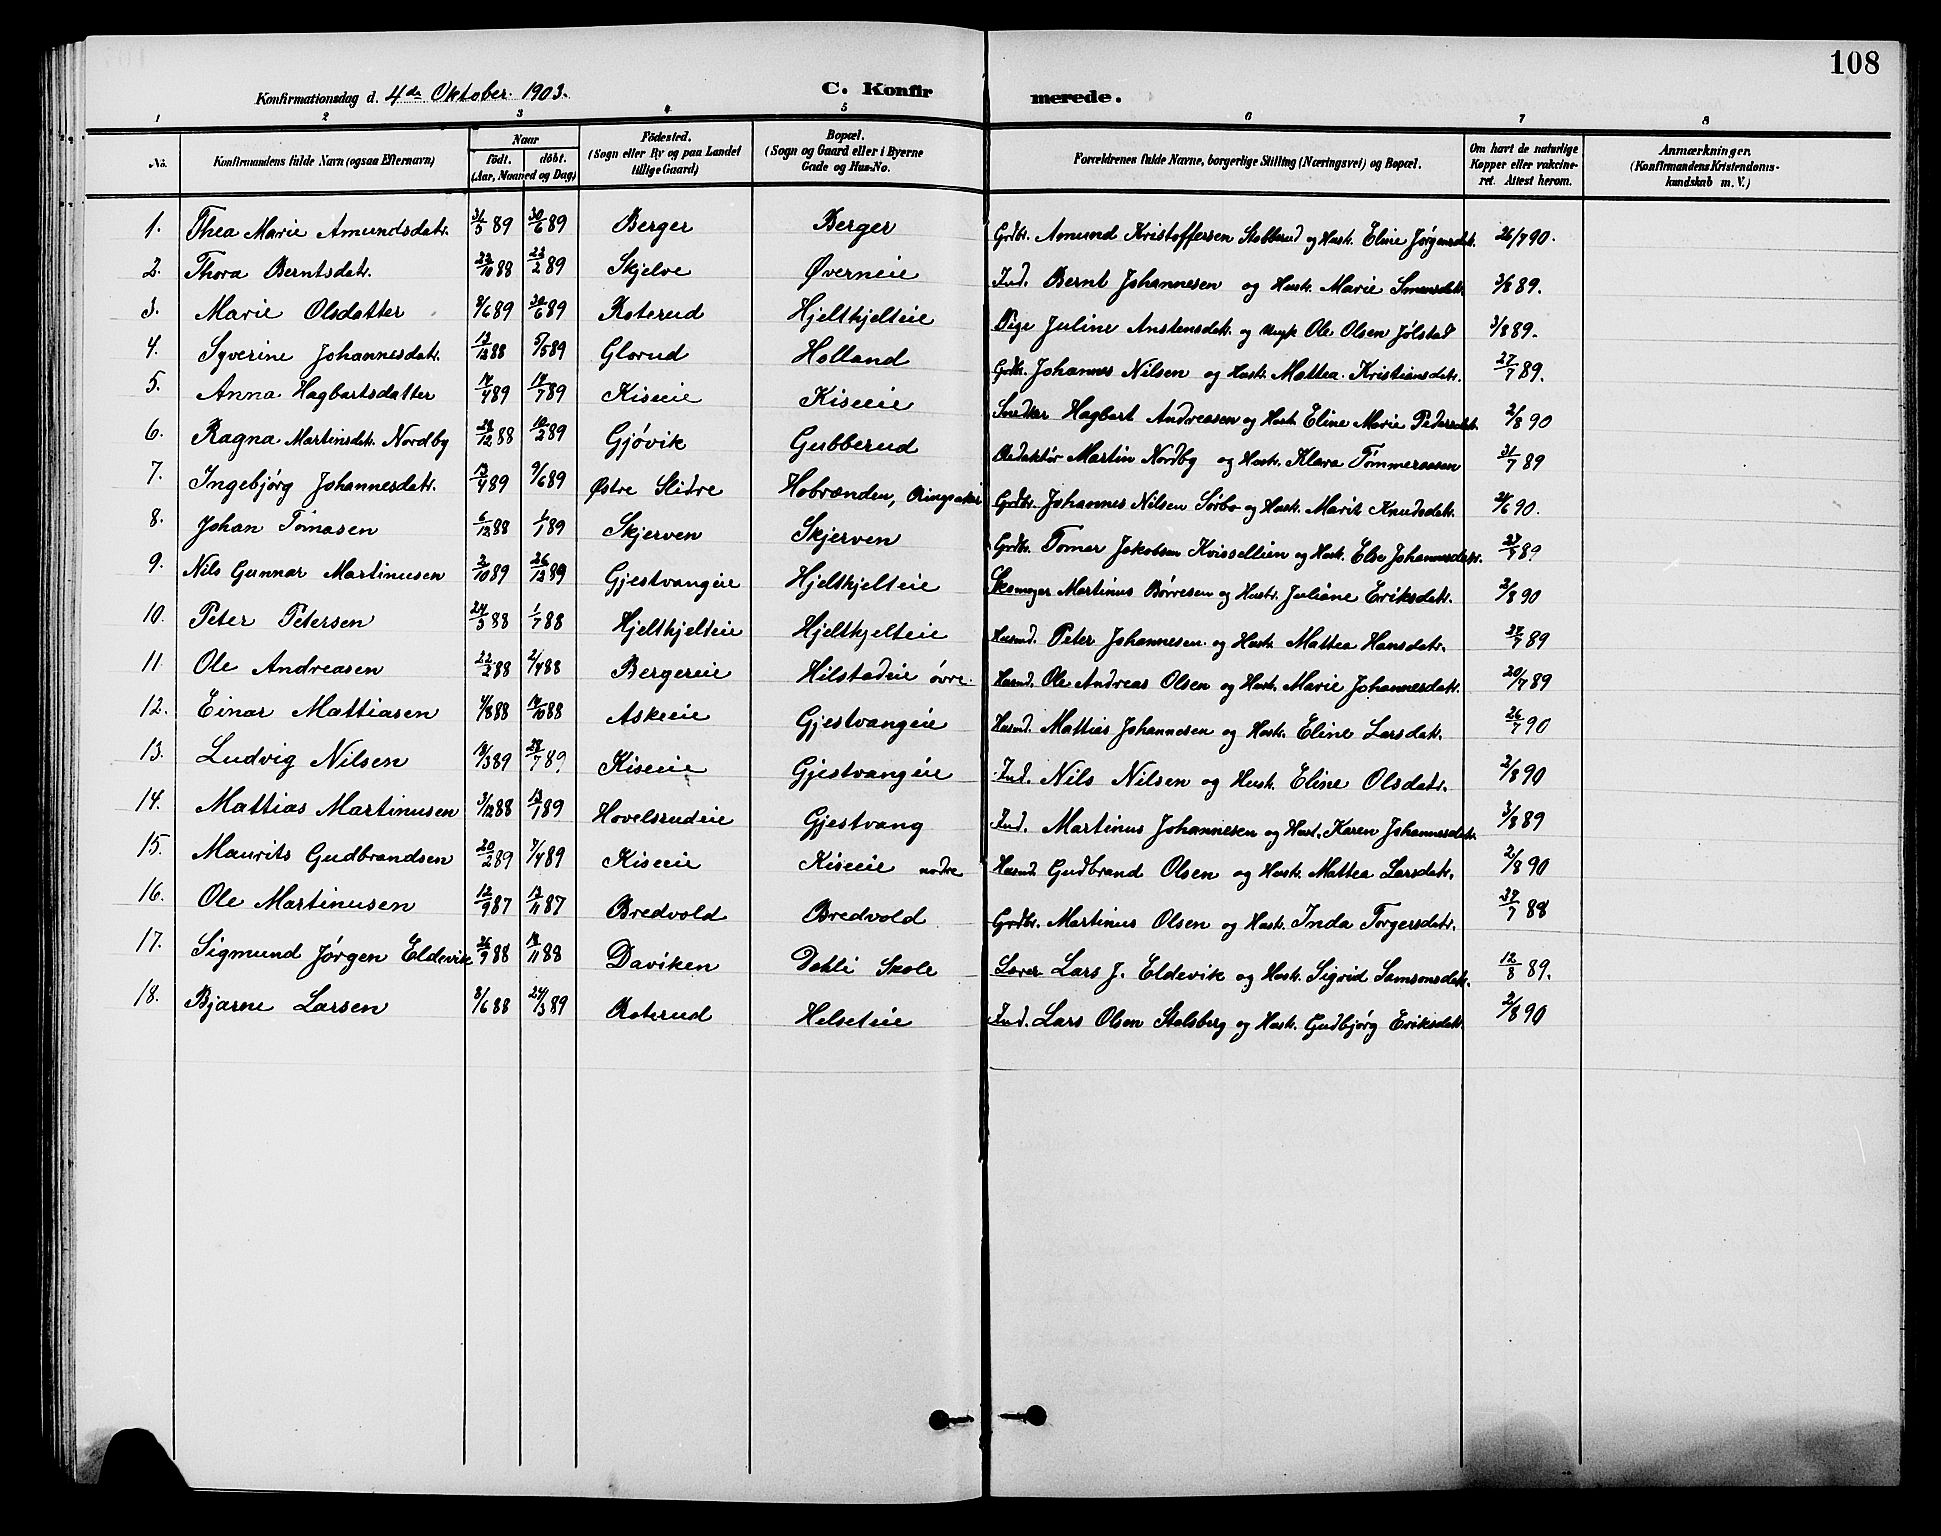 108
Konfirmationsdag d. 4de Oktober. 1903.
C. Konfirmerede.
1 2 3 4 5 6 7 8
No. Konfirmandens fulde Navn (ogsaa Efternavn) Naar født. døbt. (Aar, Maaned og Dag) Födested. (Sogn eller By og paa Landet tillige Gaard) Bopæl. (Sogn og Gaard eller i Byerne Gade og Hus-No. Forældrenes fulde Navne, borgerlige Stilling (Næringsvei) og Bopæl. Om havt de naturlige Kopper eller vakcineret. Attest herom. Anmærkninger. (Konfirmandens Kristendomskundskab m. V.)
1. Thea Marie Amundsdatr. 31/5 89 30/6 89 Berger Berger Grdbr. Amund Kristoffersen Stabberud og Hustr. Eline Jørgensdatr. 26/7 90.
2. Thora Berntsdatr. 23/10 88 23/2 89 Skjelve Øverneie Ind. Bernt Johannesen og Hustr. Marie 3/8 89.
3. Marie Olsdatter 8/6 89 30/6 89 Roterud Hjelthjelteie Pige Juline Anstensdatr. og Ungk. Ole Olsen Jølstad 3/8 89.
4. Syverine Johannesdatr. 13/12 88 5/5 89 Glorud Holland Grdbr. Johannes Nilsen og Hustr. Mattea Kristiansdatr. 27/7 89.
5. Anna Hagbartsdatter 14/4 89 14/7 89 Kiseeie Kiseeie Snedker Hagbart Andreasen og Hustr. Eline Marie Pedersdatr. 2/8 90
6. Ragna Martinsdatr. Nordby 29/12 88 10/2 89 Gjøvik Gubberud Redaktør Martin Nordby og Hustr. Klara Tømmeraasen 31/7 89
7. Ingebjørg Johannesdatr. 13/4 89 9/6 89 Østre Slidre Hobrænden, Ringsaker Grdbr. Johannes Nilsen Sørbo og Hustr. Marit Knudsdatr. 24/6 90.
8. Johan Tomasen 6/12 88 6/1 89 Skjerven Skjerven Grdbr. Tomas Jakobsen Kvissellien og Hustr. Else Johannesdatr. 27/7 89
9. Nils Gunnar Martinusen 2/10 89 26/12 89 Gjestvangeie Hjelthjelteie Skomager Martinus Børresen og Hustr. Juliane Eriksdatr. 2/8 90
10. Peter Petersen 24/5 88 1/7 88 Hjelthjelteie Hjelthjelteie Husmd. Peter Johannesen og Hustr. Mattea Hansdatr. 27/7 89
11. Ole Andreasen 22/2 88 2/4 88 Bergereie Hilstadeie øvre. Husmd. Ole Andreas Olsen og Hustr. Marie Johannesdatr. 20/7 89
12. Einar Mattiasen 4/8 88 14/10 88 Askeeie Gjestvangeie Husmd. Mattias Johannesen og Hustr. Eline Larsdatr. 26/7 90
13. Ludvig Nilsen 18/3 89 28/7 89 Kiseeie Gjestvangeie Ind. Nils Nilsen og Hustr. Eline Olsdatr. 2/8 90
14. Mattias Martinusen 3/12 88 13/1 89 Hovelsrudeie Gjestvang Ind. Martinus Johannesen og Hust. Karen Johannesdatr. 3/8 89
15. Maurits Gudbrandsen 20/2 89 7/4 89 Kiseeie Kiseeie nedre Husmd. Gudbrand Olsen og Hustr. Mattea Larsdatr. 2/8 90
16. Ole Martinusen 12/9 87 13/11 87 Bredvold Bredvold Grdbr. Martinus Olsen og Hustr. Inda Torgersdatr. 27/7 88
17. Sigmund Jørgen Eldevik 26/9 88 18/11 88 Daviken Dehli Skole Lærer Lars J. Eldevik og Hustr. Sigrid Samsonsdatr. 12/8 89.
18. Bjarne Larsen 8/6 88 24/3 89 Roterud Helseteie Ind. Lars Olsen Stalsberg og Hustr. Gudbjørg Eriksdatr. 2/8 90